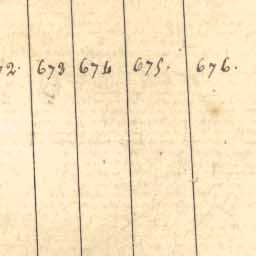 72. 673 674 675. 676.